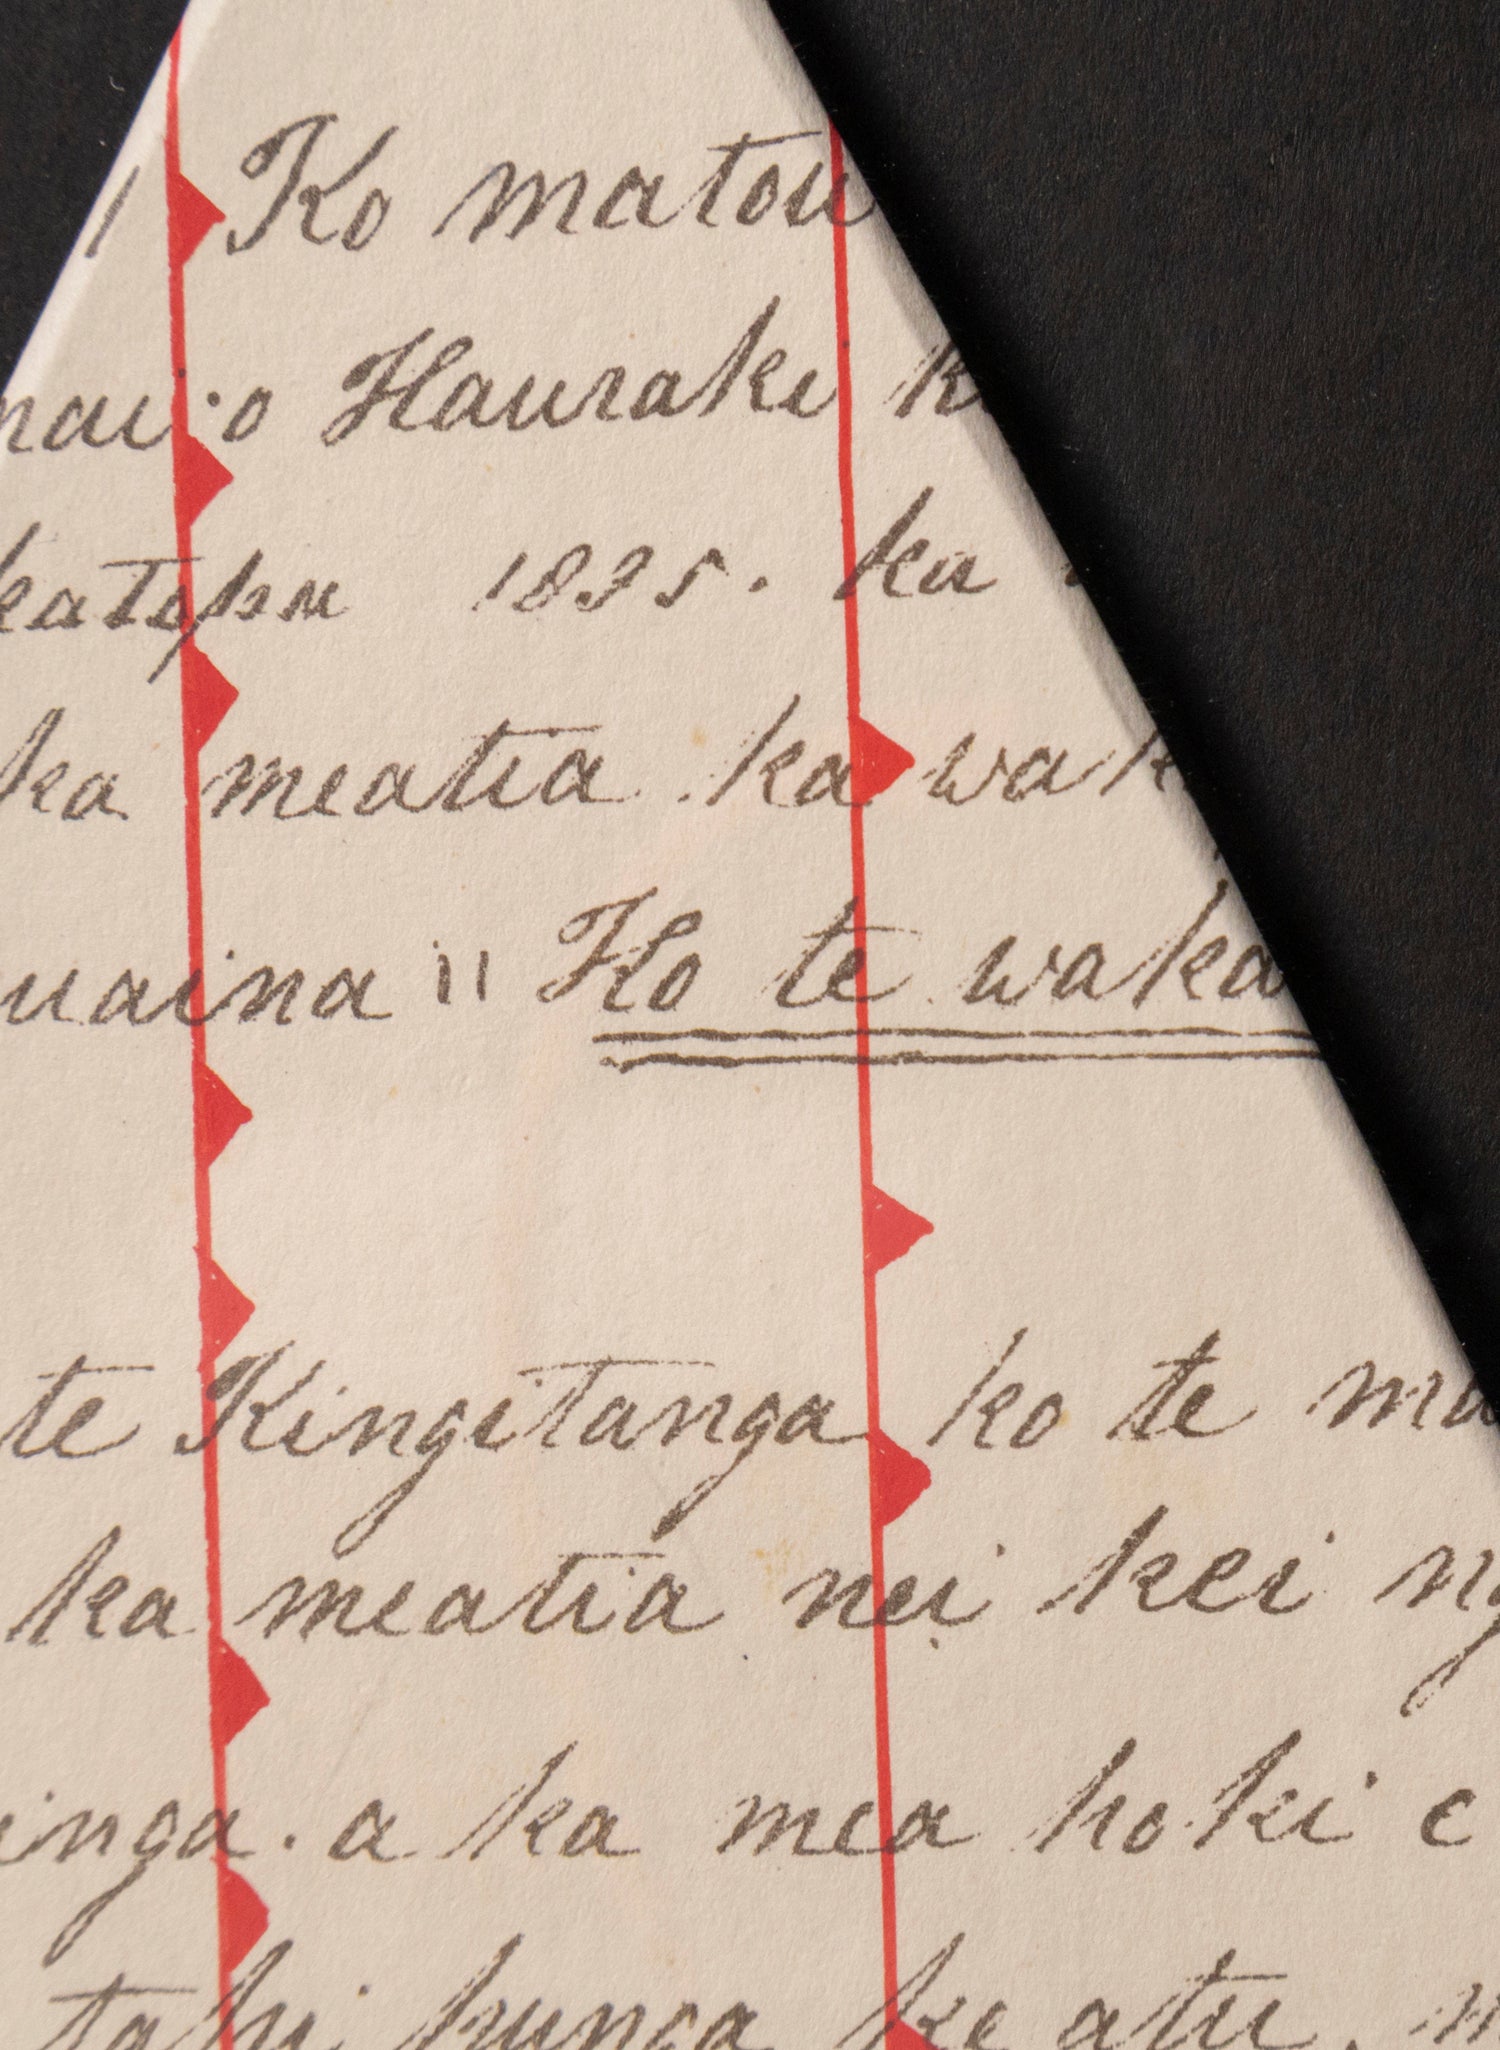 1 Ko matou
nai o Hauraki k
katipu 1895. ka
ka meatia . ka wak
uaina " Ko te waka
te Kingitanga ko te ma
ka meatia nei kei ng
inga. a ka mea hoki e
tahi hunga ke atu. m